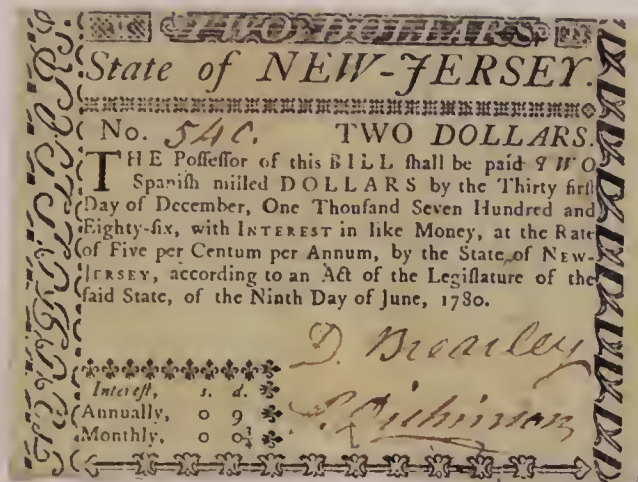 TWO DOLLARS
State of NEW-JERSEY.
No. 540. TWO DOLLARS.
THE Poſſeſſor of this BILL ſhall be paid TWO
Spaniſh milled DOLLARS by the Thirty firſt
Day of December, One Thouſand Seven Hundred and
Eighty-ſix, with INTEREST in like Money, at the Rate
of Five per Centum per Annum, by the State of NEW-
JERSEY, according to an Act of the Legiſlature of the
ſaid State, of the Ninth Day of June, 1780.
D. Brearley
P. Dickinson
Intereſt, s. d.
Annually, 0 9
Monthly, 0 0¾